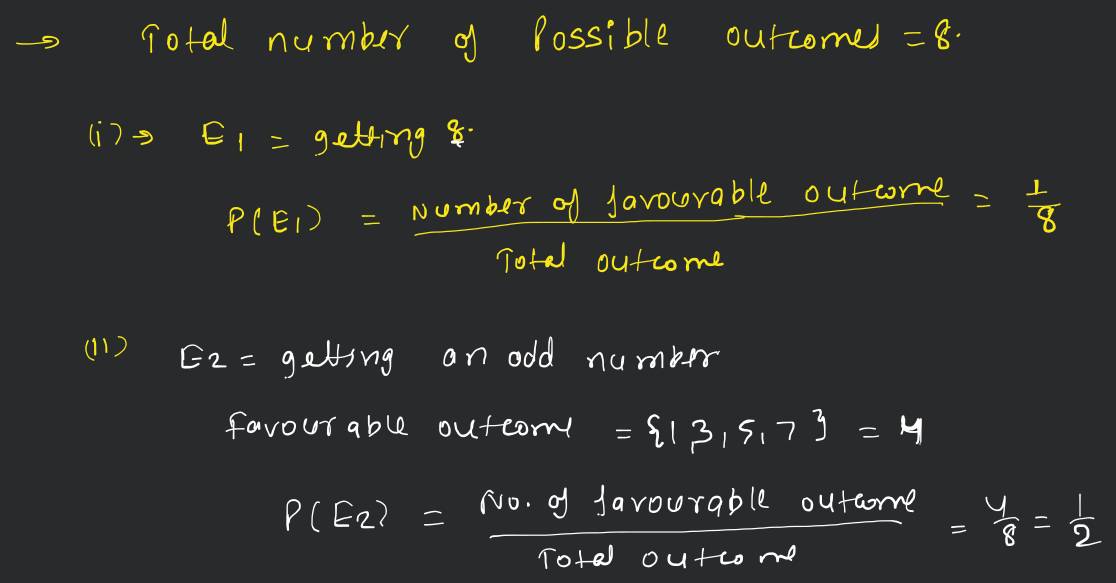 → Total number of Possible outcomes = 8.
(i) → E1 = getting 8.
P(E1) = Number of favourable outcome / Total outcome = 1/8
(11) E2 = getting an odd number
favourable outcome = {1 3, 5, 7} = 4
P(E2) = No. of favourable outcome / Total outcome = 4/8 = 1/2